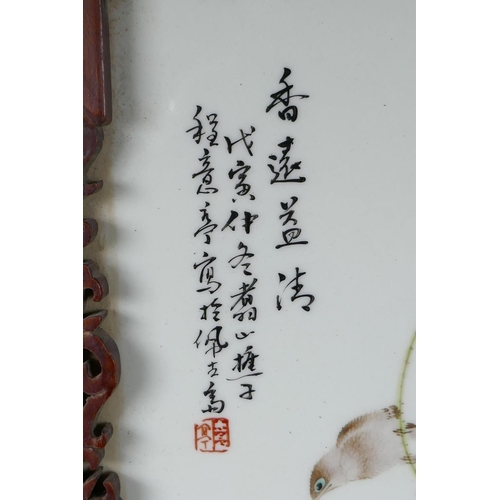 香遠益清
戊寅仲冬翥山樵子
程意亭寫於佩古齋